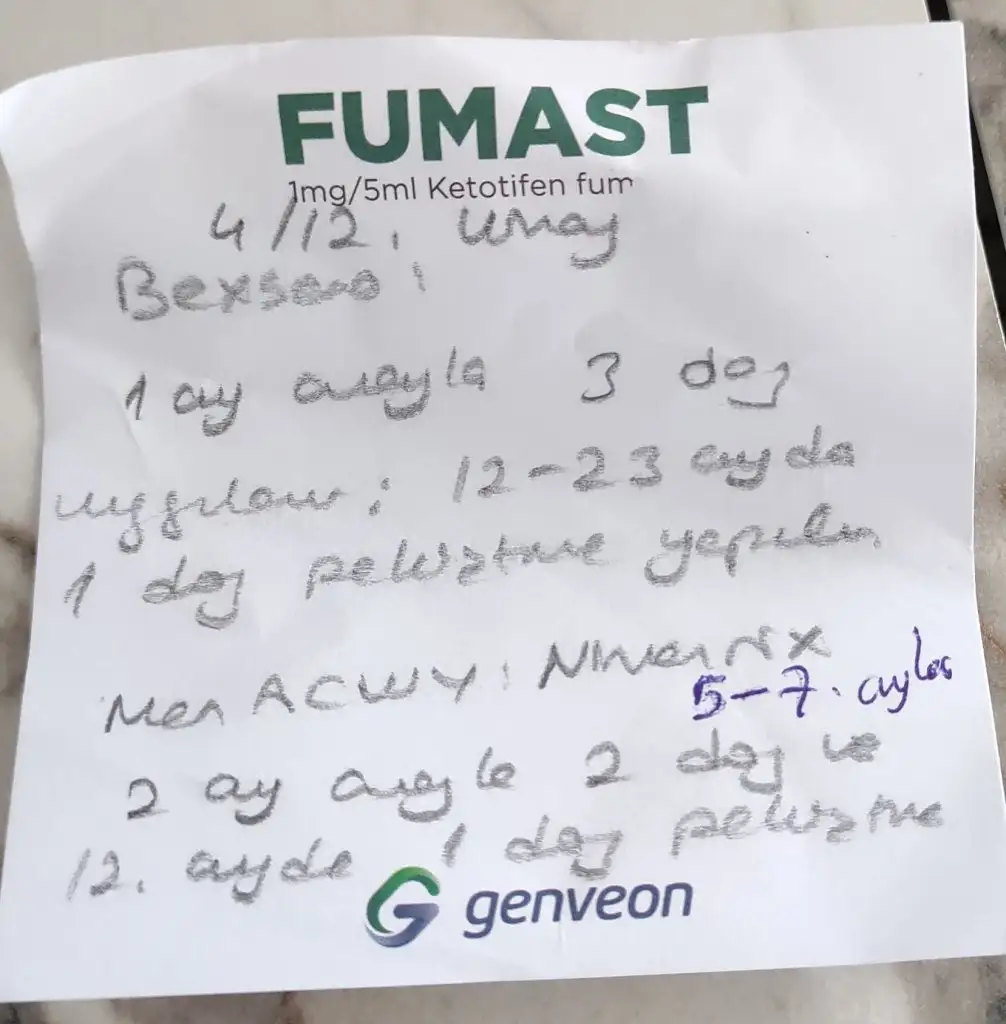 FUMAST
1mg/5ml Ketotifen fum
4/12. Umay
Bexsero:
1 ay arayla 3 doz
uygulanır: 12-23 ayda
1 doz pekiştirme yapılır
Men ACWY: Nimenrix
5-7. aylar
2 ay arayla 2 doz ve
12. ayda 1 doz pekiştirme
genveon